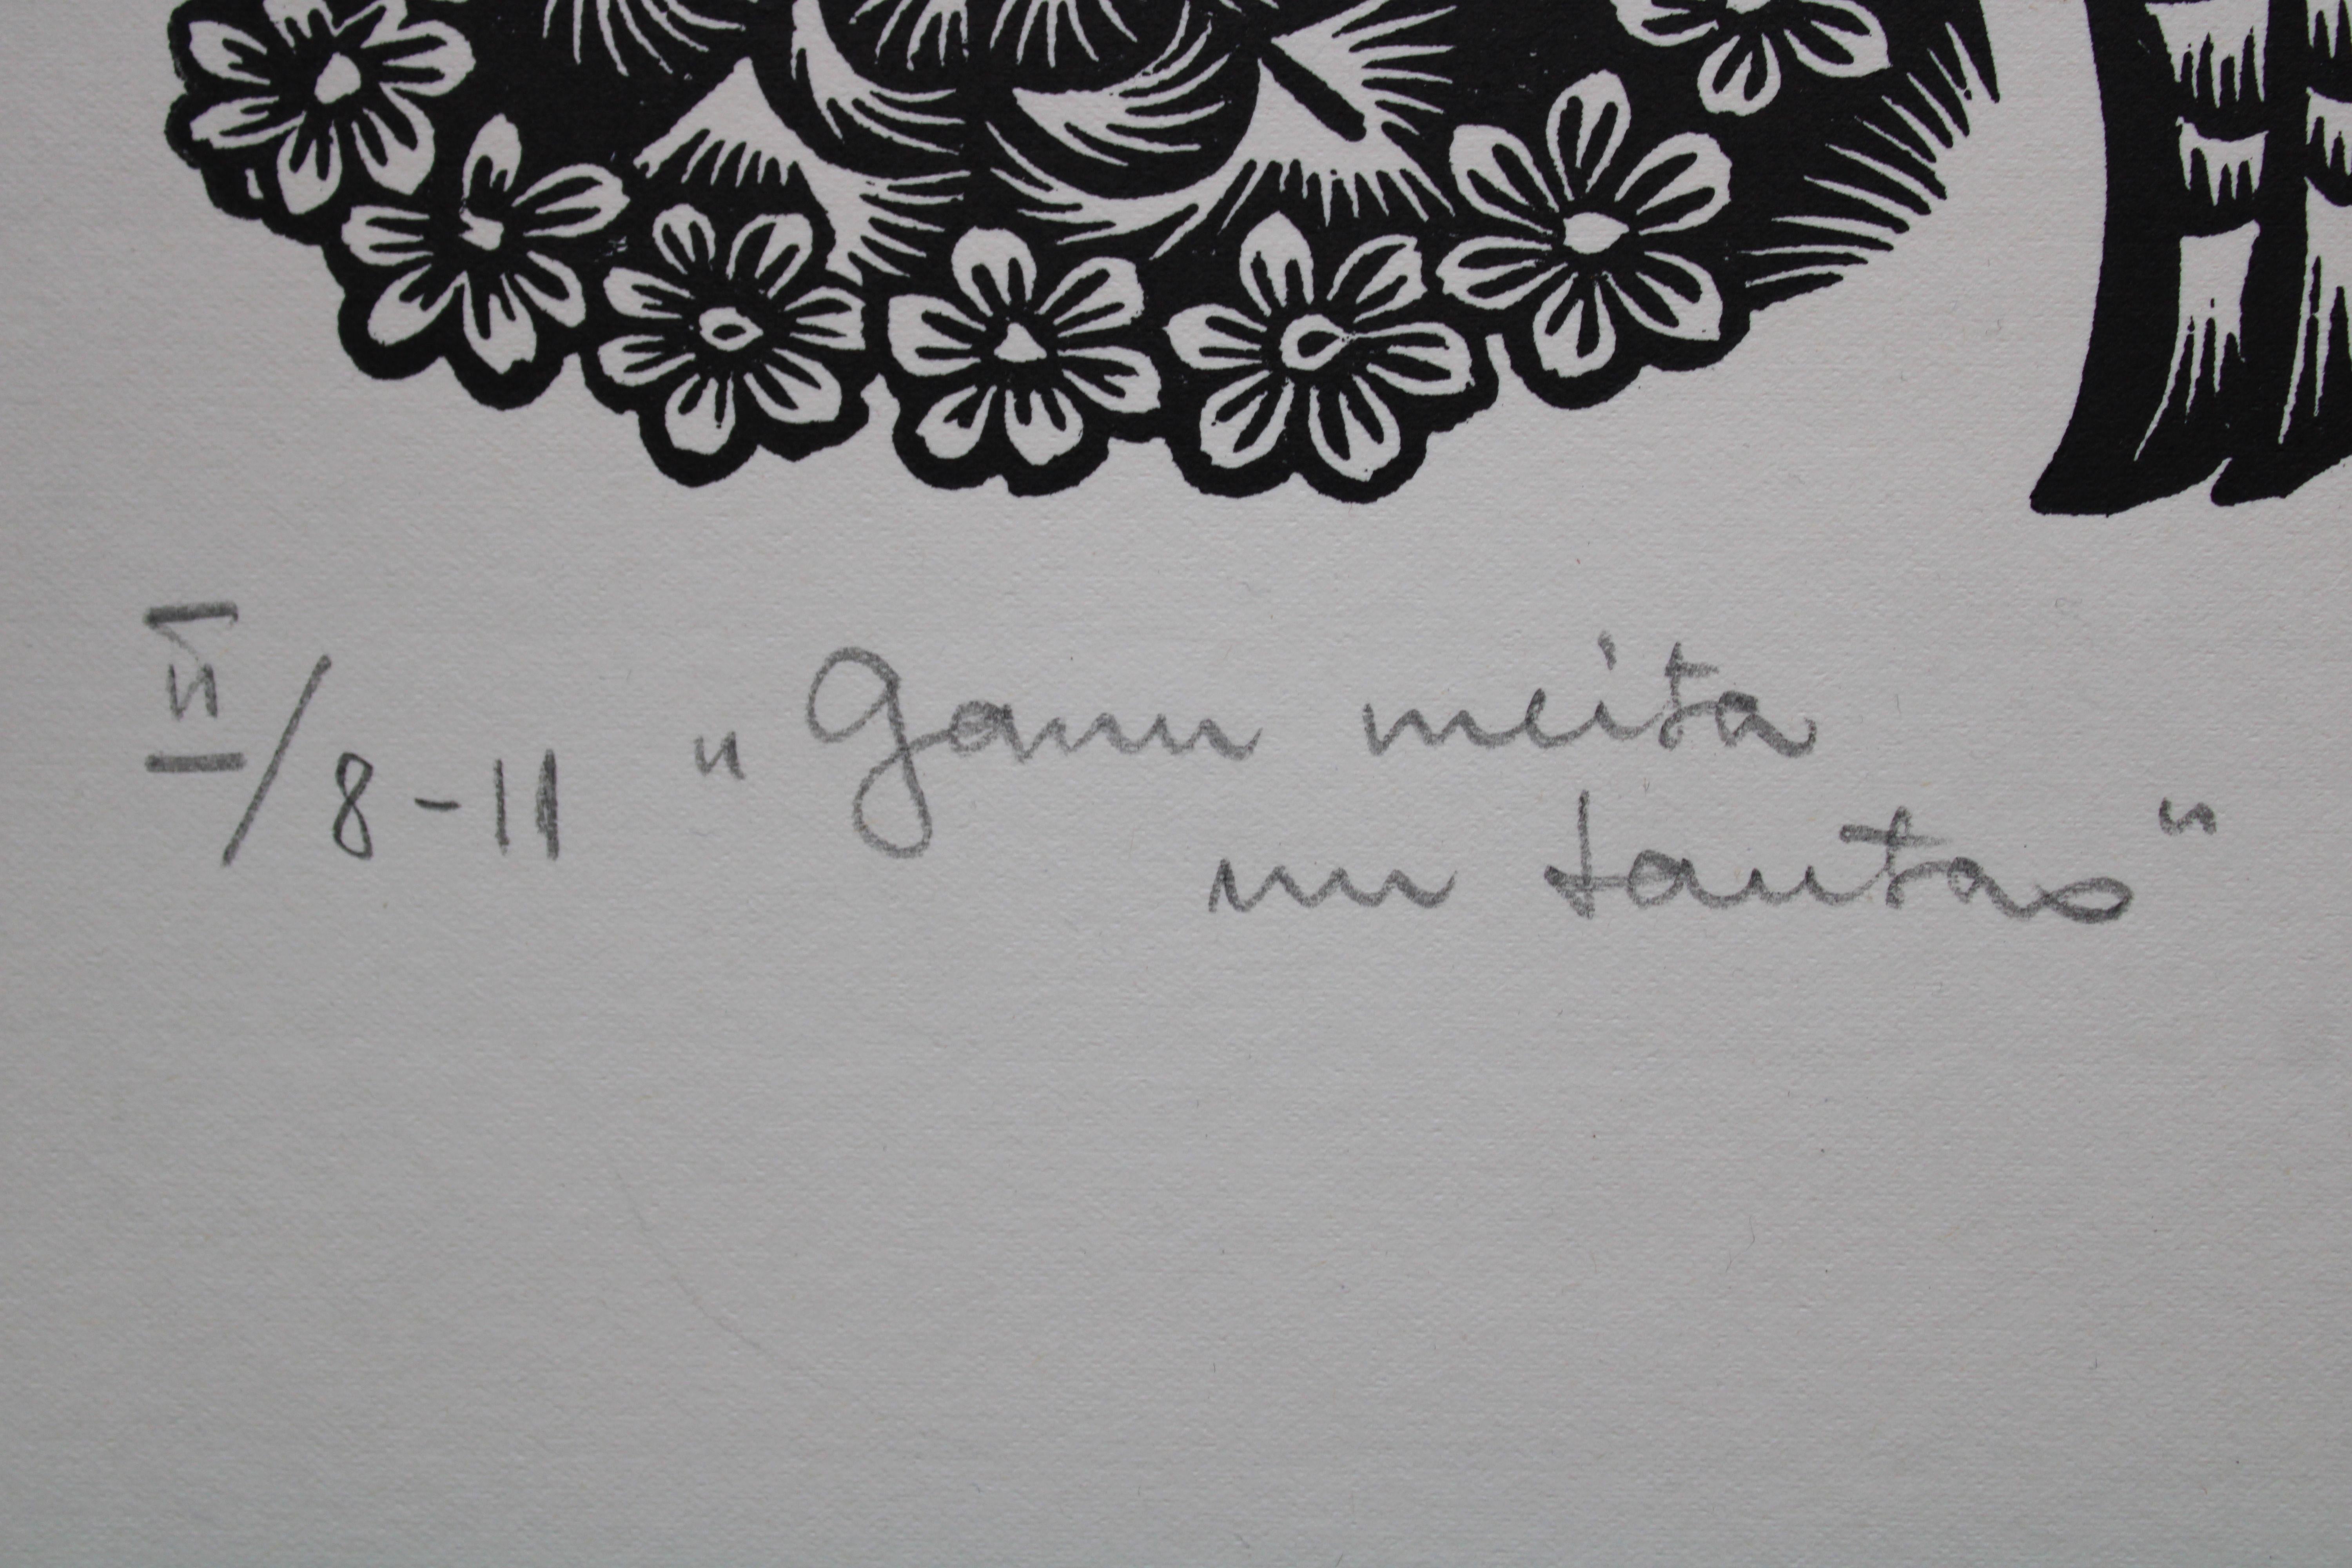 II/8-11 „Ganu meita
un tautas"